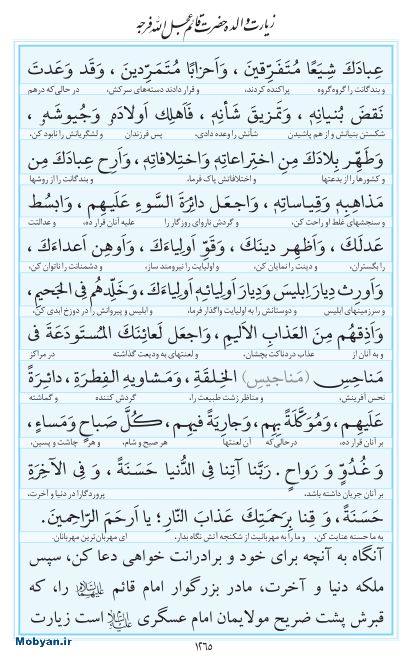 زیارت والده حضرت قائم عجل الله فرجه
عِبادَكَ شِيَعًا مُتَفَرِّقينَ ، وَاَحزابًا مُتَمَرِّدينَ ، وَقَد وَعَدتَ
و بندگانت را گروه گروه پراکنده کردند، و قرار دادند دسته‌های سرکش، در حالی که درهم
نَقضَ بُنيانِهِ ، وَتَمزيقَ شَأنِهِ ، فَاَهلِك اَولادَهُ وَجُيوشَهُ ،
شکستن بنیانش و از هم پاشیدن شأنش را وعده دادی، پس فرزندان و لشگریانش را نابود کن،
وَطَهِّر بِلادَكَ مِن اختِراعاتِهِ وَاختِلافاتِهِ، وَاَرِح عِبادَكَ مِن
و کشورها را از بدعتها و اختلافاتش پاک فرما، و بندگانت را از روشها
مَذاهِبِهِ وَقِياساتِهِ، وَاجعَل دائِرَةَ السَّوءِ عَلَيهِم ، وَابسُط
و سنجشهای غلط او راحت کن، و گردش ناروای روزگار را علیه آنان قرار ده، و عدالتت
عَدلَكَ ، وَاَظهِر دينَكَ ، وَقَوِّ اَولِياءَكَ ، وَاَوهِن اَعداءَكَ ،
را بگستران، و دینت را نمایان کن، و اولیایت را نیرومند ساز، و دشمنانت را ناتوان کن،
وَاَورِث دِيارَ اِبليسَ وَدِيارَ اَولِيائِهِ اَولِياءَكَ ، وَخَلِّدهُم فِى الجَحيمِ،
و سرزمینهای ابلیس و دوستانش را به اولیایت واگذار فرما، و ابلیس و پیروانش را در دوزخ ابدی کن،
وَاَذِقهُم مِنَ العَذابِ الاَليمِ، وَاجعَل لَعائِنَكَ المُستَودَعَةَ فى
و به آنان از عذاب دردناکت بچشان، و لعنتهای به ودیعت گذاشته در مراکز
مَناحِسِ (مَناجيسِ) الخِلقَةِ، وَمَشاويهِ الفِطرَةِ ، دائِرَةً
نحس آفرینش، و مناظر زشت طبیعت را، گردش کننده و گماشته
عَلَيهِم، وَمُوَكَّلَةً بِهِم، وَجارِيَةً فيهِم ، كُلَّ صَباحٍ وَمَساءٍ،
بر آنان قرار ده، در حالی که آن لعنتها هر صبح و شام، و هر چاشت و پسین،
وَ غُدُوٍّ وَ رَواحٍ . رَبَّنا آتِنا فِى الدُّنيا حَسَنَةً ، وَ فِى الآخِرَةِ
بر آنان جریان داشته باشد. پروردگارا در دنیا و آخرت،
حَسَنَةً ، وَ قِنا بِرَحمَتِكَ عَذابَ النّارِ؛ يا اَرحَمَ الرّاحِمينَ.
به ما حسنه عنایت کن، و ما را به مهربانیت از شکنجه آتش نگاه بدار، ای مهربان‌ترین مهربانان.
آنگاه به آنچه برای خود و برادرانت خواهی دعا کن، سپس
ملکه دنیا و آخرت، مادر بزرگوار امام قائم علیهما السلام را، که
قبرش پشت ضریح مولایمان امام عسگری علیه السلام است زیارت
۱۲۶۵
Mobyan.ir